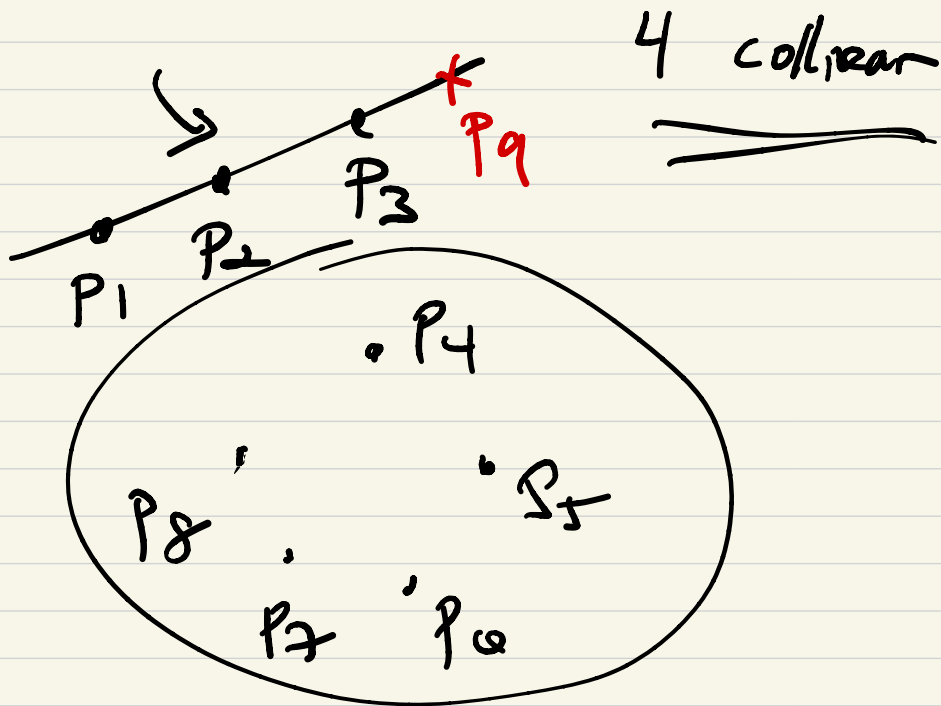 4 collinear
P9
P3
P2
P1
P4
P5
P8
P7
P6